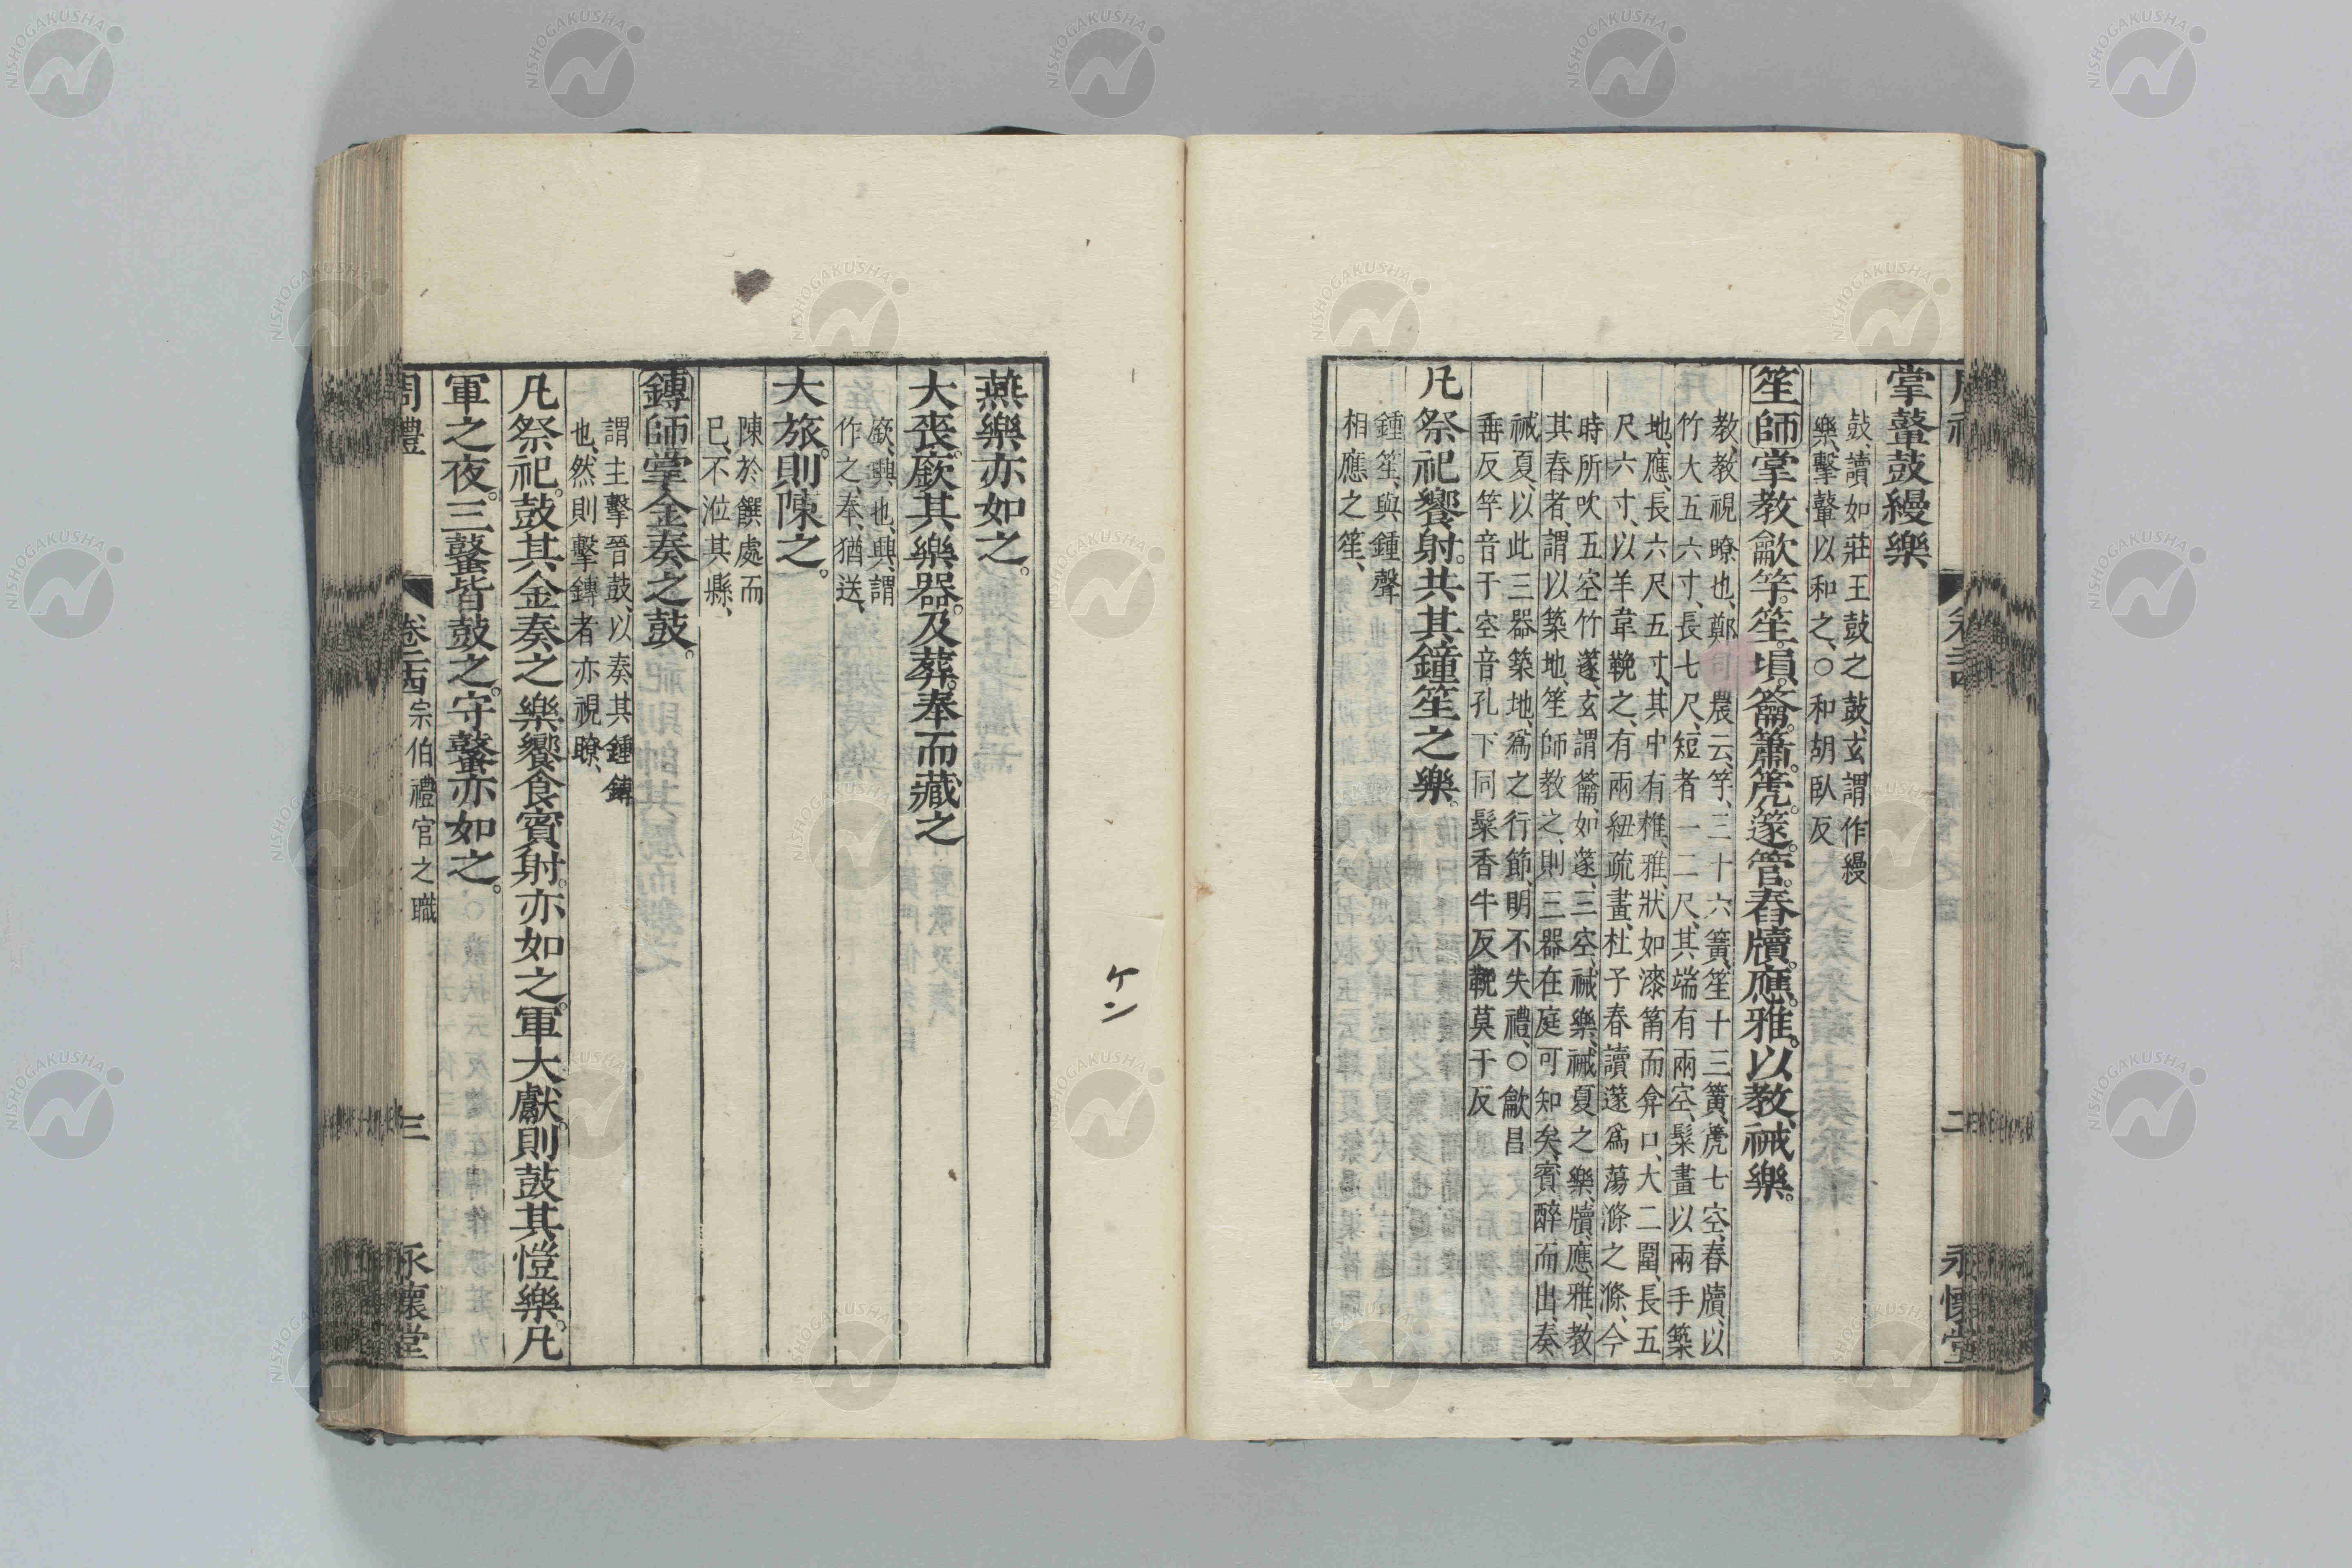 掌鼛鼓縵樂
鼓讀如莊王鼓之鼓、玄謂作縵
樂、擊鼛以和之、○和胡臥反
笙師掌教龡竽。笙。塤。籥。簫。篪。篴。管。舂牘。應。雅。以教祴樂。
教、教視瞭也、鄭司農云、竽、三十六簧、笙十三簧、篪七空、舂牘、以
竹大五六寸、長七尺、短者一二尺、其端有兩空、髹畫以兩手築
地、應、長六尺五寸、其中有椎、雅、狀如漆筩而弇口、大二圍、長五
尺六寸、以羊韋鞔之、有兩紐疏畫、杜子春讀篴爲蕩滌之滌、今
時所吹五空竹篴、玄謂籥、如篴、三空、祴樂、祴夏之樂、牘、應、雅、教
其舂者、謂以築地、笙師教之、則三器在庭可知矣、賓醉而出、奏
祴夏、以此三器築地、爲之行節、明不失禮、○龡昌
垂反竽音于空音孔、下同髹香牛反鞔莫于反
凡祭祀饗射。共其鐘笙之樂。
鍾笙、與鍾聲
相應之笙、
燕樂亦如之。
大喪。廞其樂器。及葬。奉而藏之
廞、興也、興、謂
作之、奉、猶送、
大旅。則陳之。
陳於饌處而
已、不涖其縣、
鎛師掌金奏之鼓。
謂主擊晉鼓、以奏其鍾鎛
也、然則擊鎛者亦視瞭、
凡祭祀。鼓其金奏之樂。饗食賓射。亦如之。軍大獻。則鼓其愷樂。凡
軍之夜。三鼜皆鼓之。守鼜亦如之。
周禮 宗伯禮官之職 三 永懷堂
ケン
二 永懷堂